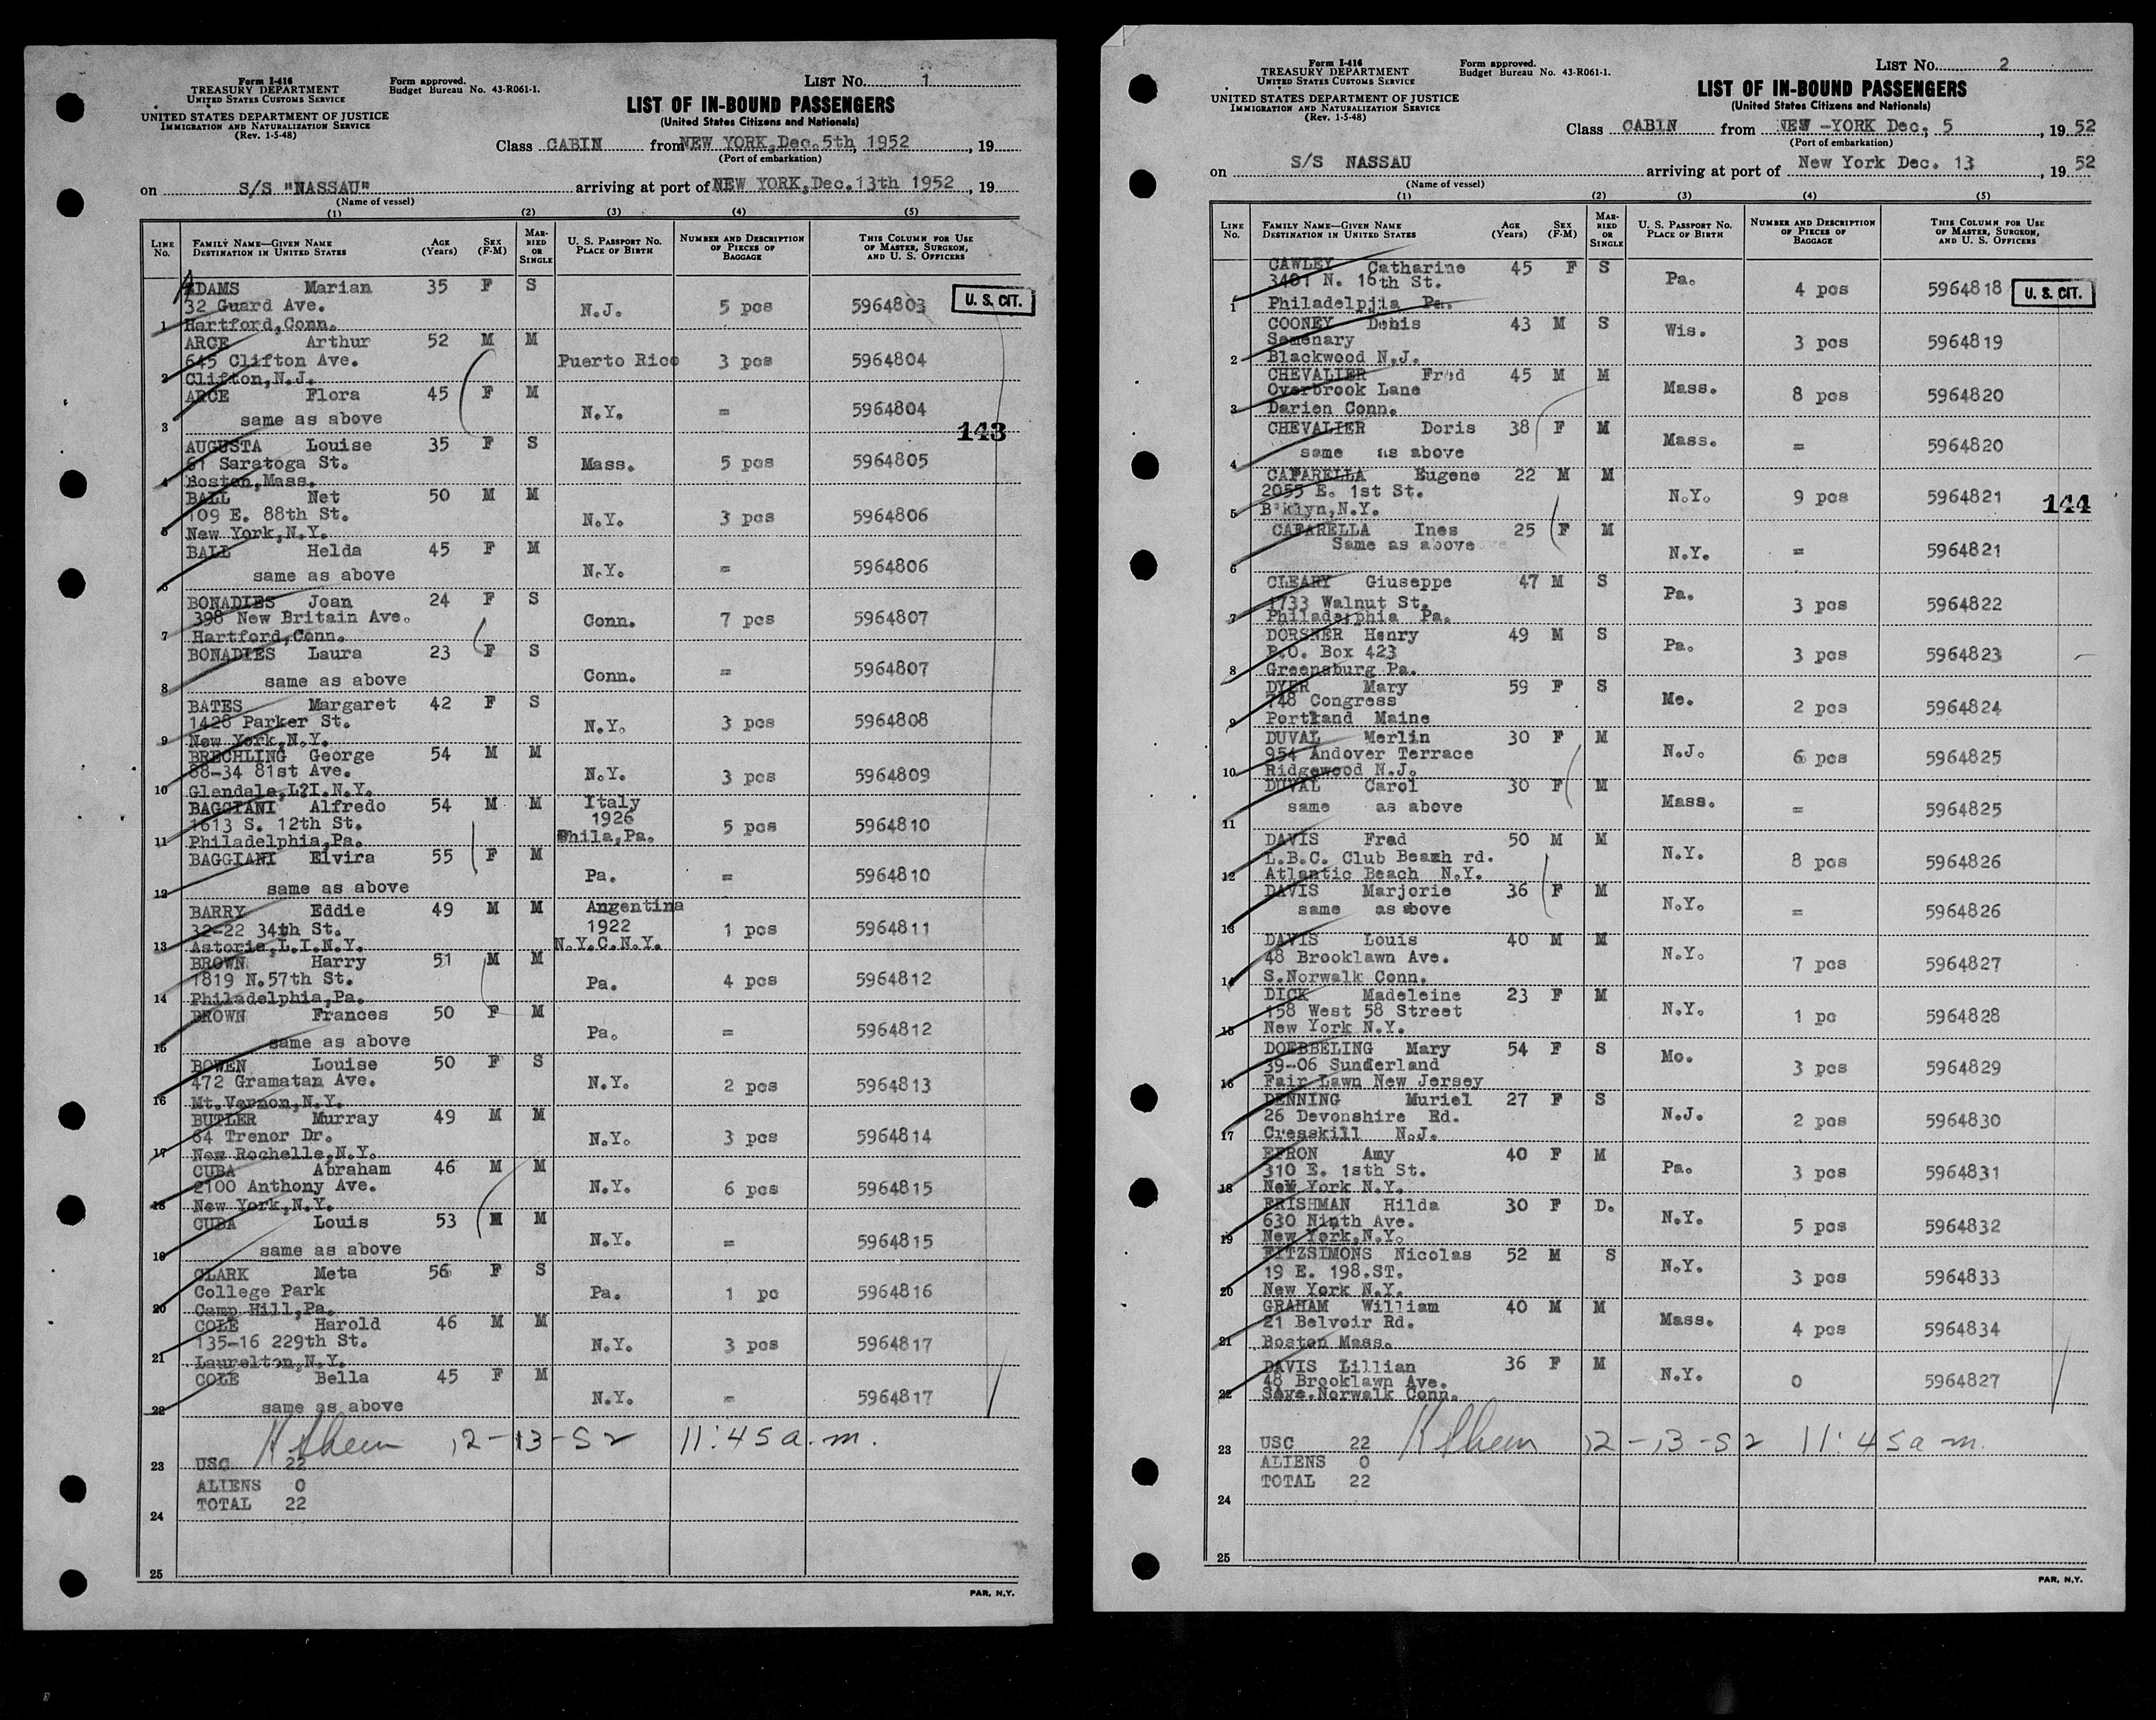 Form I-416
TREASURY DEPARTMENT
UNITED STATES CUSTOMS SERVICE
UNITED STATES DEPARTMENT OF JUSTICE
IMMIGRATION AND NATURALIZATION SERVICE
(Rev. 1-5-48)
Form approved.
Budget Bureau No. 43-R061-1.
LIST NO. 1
LIST OF IN-BOUND PASSENGERS
(United States Citizens and Nationals)
Class CABIN from NEW YORK, Dec. 5th, 1952, 19
(Port of embarkation)
on S/S "NASSAU" arriving at port of NEW YORK, Dec. 13th 1952, 19
(Name of vessel)
(1) (2) (3) (4) (5)
LINE NO. FAMILY NAME—GIVEN NAME DESTINATION IN UNITED STATES AGE (Years) SEX (F-M) MARRIED OR SINGLE U. S. PASSPORT NO. PLACE OF BIRTH NUMBER AND DESCRIPTION OF PIECES OF BAGGAGE THIS COLUMN FOR USE OF MASTER, SURGEON, AND U. S. OFFICERS
U. S. CIT.
143
ADAMS Marian 35 F S
32 Guard Ave. N.J. 5 pcs 5964803
1 Hartford,Conn.
ARCE Arthur 52 M M
645 Clifton Ave. Puerto Rico 3 pcs 5964804
2 Clifton,N.J.
ARCE Flora 45 F M
3 same as above N.Y. = 5964804
AUGUSTA Louise 35 F S
61 Saratoga St. Mass. 5 pcs 5964805
4 Boston,Mass.
BALL Net 50 M M
109 E. 88th St. N.Y. 3 pcs 5964806
5 New York,N.Y.
BALL Helda 45 F M
6 same as above N.Y. = 5964806
BONADIES Joan 24 F S
398 New Britain Ave. Conn. 7 pcs 5964807
7 Hartford,Conn.
BONADIES Laura 23 F S
8 same as above Conn. = 5964807
BATES Margaret 42 F S
1428 Parker St. N.Y. 3 pcs 5964808
9 New York,N.Y.
BRECHLING George 54 M M
88-34 81st Ave. N.Y. 3 pcs 5964809
10 Glendale,L?I.N.Y.
BAGGIANI Alfredo 54 M M Italy
1613 S. 12th St. 1926 5 pcs 5964810
11 Philadelphia,Pa. Phila,Pa.
BAGGIANI Elvira 55 F M
12 same as above Pa. = 5964810
BARRY Eddie 49 M M Angentina
32-22 34th St. 1922 1 pcs 5964811
13 Astoria,L.I.N.Y. N.Y.C.N.Y.
BROWN Harry 51 M M
1819 N.57th St. Pa. 4 pcs 5964812
14 Philadelphia,Pa.
BROWN Frances 50 F M
15 same as above Pa. = 5964812
BOWEN Louise 50 F S
472 Gramatan Ave. N.Y. 2 pcs 5964813
16 Mt.Vernon,N.Y.
BUTLER Murray 49 M M
64 Trenor Dr. N.Y. 3 pcs 5964814
17 New Rochelle,N.Y.
CUBA Abraham 46 M M
2100 Anthony Ave. N.Y. 6 pcs 5964815
18 New York,N.Y.
CUBA Louis 53 M M
19 same as above N.Y. = 5964815
CLARK Meta 56 F S
College Park Pa. 1 pc 5964816
20 Camp Hill,Pa.
COLE Harold 46 M M
135-16 229th St. N.Y. 3 pcs 5964817
21 Laurelton,N.Y.
COLE Bella 45 F M
22 same as above N.Y. = 5964817
12-13-52 11:45 a.m.
23 USC 22
ALIENS 0
TOTAL 22
24
25
PAR. N.Y.
Form I-416
TREASURY DEPARTMENT
UNITED STATES CUSTOMS SERVICE
UNITED STATES DEPARTMENT OF JUSTICE
IMMIGRATION AND NATURALIZATION SERVICE
(Rev. 1-5-48)
Form approved.
Budget Bureau No. 43-R061-1.
LIST NO. 2
LIST OF IN-BOUND PASSENGERS
(United States Citizens and Nationals)
Class CABIN from NEW -YORK Dec, 5, 19 52
(Port of embarkation)
on S/S NASSAU arriving at port of New York Dec. 13, 19 52
(Name of vessel)
(1) (2) (3) (4) (5)
LINE NO. FAMILY NAME—GIVEN NAME DESTINATION IN UNITED STATES AGE (Years) SEX (F-M) MARRIED OR SINGLE U. S. PASSPORT NO. PLACE OF BIRTH NUMBER AND DESCRIPTION OF PIECES OF BAGGAGE THIS COLUMN FOR USE OF MASTER, SURGEON, AND U. S. OFFICERS
U. S. CIT.
144
CAWLEY Catharine 45 F S
3401 N. 16th St. Pa. 4 pcs 5964818
1 Philadelpjia Pa.
COONEY Denis 43 M S
Semenary Wis. 3 pcs 5964819
2 Blackwood N.J.
CHEVALIER Fred 45 M M
Overbrook Lane Mass. 8 pcs 5964820
3 Darien Conn.
CHEVALIER Doris 38 F M
4 same as above Mass. = 5964820
CAFARELLA Eugene 22 M M
2055 E. 1st St. N.Y. 9 pcs 5964821
5 B'klyn,N.Y.
CAFARELLA Ines 25 F M
6 Same as above N.Y. = 5964821
CLEARY Giuseppe 47 M S
1733 Walnut St. Pa. 3 pcs 5964822
7 Philadelphia Pa.
DORSNER Henry 49 M S
P.O. Box 423 Pa. 3 pcs 5964823
8 Greensburg Pa.
DYER Mary 59 F S
748 Congress Me. 2 pcs 5964824
9 Portland Maine
DUVAL Merlin 30 F M
954 Andover Terrace N.J. 6 pcs 5964825
10 Ridgewood N.J.
DUVAL Carol 30 F M
11 same as above Mass. = 5964825
DAVIS Fred 50 M M
L.B.C. Club Beazh rd. N.Y. 8 pcs 5964826
12 Atlantic Beach N.Y.
DAVIS Marjorie 36 F M
13 same as above N.Y. = 5964826
DAVIS Louis 40 M M
48 Brooklawn Ave. N.Y. 7 pcs 5964827
14 S.Norwalk Conn.
DICK Madeleine 23 F M
158 West 58 Street N.Y. 1 pc 5964828
15 New York N.Y.
DOEBBELING Mary 54 F S
39-06 Sunderland Mo. 3 pcs 5964829
16 Fair Lawn New Jersey
DENNING Muriel 27 F S
26 Devonshire Rd. N.J. 2 pcs 5964830
17 Cresskill N.J.
EFRON Amy 40 F M
310 E. 1sth St. Pa. 3 pcs 5964831
18 New York N.Y.
FRISHMAN Hilda 30 F D.
630 Ninth Ave. N.Y. 5 pcs 5964832
19 New York,N.Y.
FITZSIMONS Nicolas 52 M S
19 E. 198.ST. N.Y. 3 pcs 5964833
20 New York N.Y.
GRAHAM William 40 M M
21 Belvoir Rd. Mass. 4 pcs 5964834
21 Boston Mass.
DAVIS Lillian 36 F M
48 Brooklawn Ave. N.Y. 0 5964827
22 Norwalk Conn.
23 USC 22 12-13-52 11:45 a m.
ALIENS 0
TOTAL 22
24
25
PAR. N.Y.